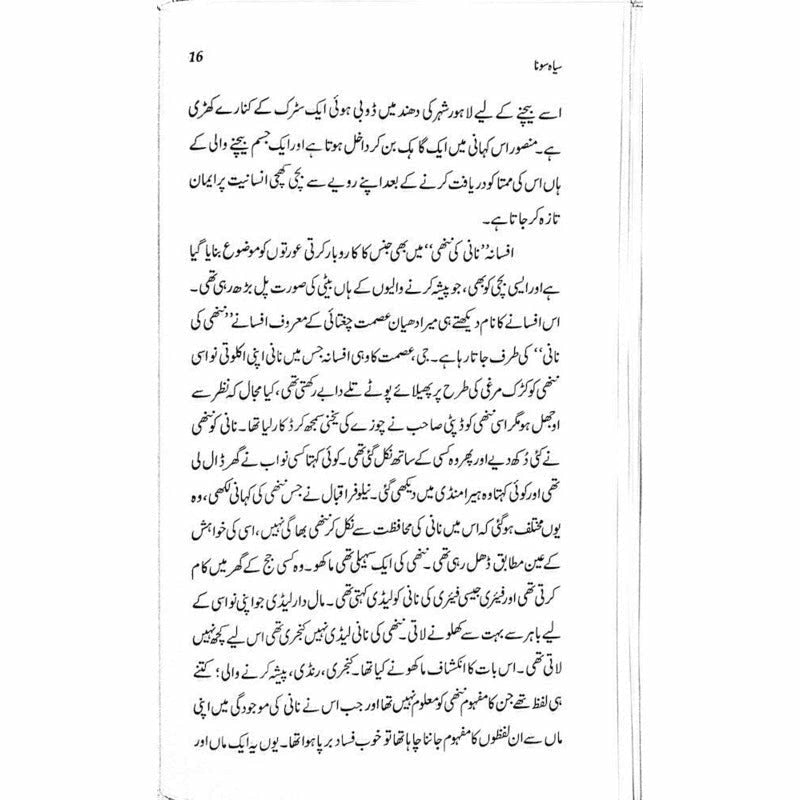 سیاہ سونا
16
اسے بیچنے کے لیے لاہور شہر کی دھند میں ڈوبی ہوئی ایک سڑک کے کنارے کھڑی
ہے۔ منصور اس کہانی میں ایک گاہک بن کر داخل ہوتا ہے اور ایک جسم بیچنے والی کے
ہاں اس کی ممتا کو دریافت کرنے کے بعد اپنے رویے سے بچی کھچی انسانیت پر ایمان
تازہ کر جاتا ہے۔
افسانہ ”نانی کی ننھی“ میں بھی جنس کا کاروبار کرتی عورتوں کو موضوع بنایا گیا
ہے اور ایسی بچی کو بھی، جو پیشہ کرنے والیوں کے ہاں بیٹی کی صورت پل بڑھ رہی تھی۔
اس افسانے کا نام دیکھتے ہی میرا دھیان عصمت چغتائی کے معروف افسانے ”ننھی کی
نانی“ کی طرف جاتا رہا ہے۔ جی، عصمت کا وہی افسانہ جس میں نانی اپنی اکلوتی نواسی
ننھی کو کڑک مرغی کی طرح پر پھیلائے پوٹے تلے دابے رکھتی تھی، کیا مجال کہ نظر سے
اوجھل ہو مگر اسی ننھی کو ڈپٹی صاحب نے چوزے کی یخنی سمجھ کر ڈکار لیا تھا۔ نانی کو ننھی
نے کئی دُکھ دیے اور پھر وہ کسی کے ساتھ نکل گئی تھی۔ کوئی کہتا کسی نواب نے گھر ڈال لی
تھی اور کوئی کہتا وہ ہیرا منڈی میں دیکھی گئی۔ نیلوفر اقبال نے جس ننھی کی کہانی لکھی، وہ
یوں مختلف ہو گئی کہ اس میں نانی کی محافظت سے نکل کر ننھی بھاگی نہیں، اسی کی خواہش
کے عین مطابق ڈھل رہی تھی۔ ننھی کی ایک سہیلی تھی ماکھو۔ وہ کسی جج کے گھر میں کام
کرتی تھی اور فیئری جیسی فیئری کی نانی کو لیڈی کہتی تھی۔ مال دار لیڈی جو اپنی نواسی کے
لیے باہر سے بہت سے کھلونے لاتی۔ ننھی کی نانی لیڈی نہیں کنجری تھی اس لیے کچھ نہیں
لاتی تھی۔ اس بات کا انکشاف ماکھو نے کیا تھا۔ کنجری، رنڈی، پیشہ کرنے والی؛ کتنے
ہی لفظ تھے جن کا مفہوم ننھی کو معلوم نہیں تھا اور جب اس نے نانی کی موجودگی میں اپنی
ماں سے ان لفظوں کا مفہوم جاننا چاہا تھا تو خوب فساد برپا ہوا تھا۔ یوں یہ ایک ماں اور